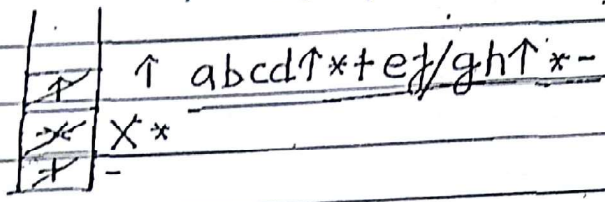 ↑ ↑ abcd↑*+ef/gh↑*-
* X *
+ -